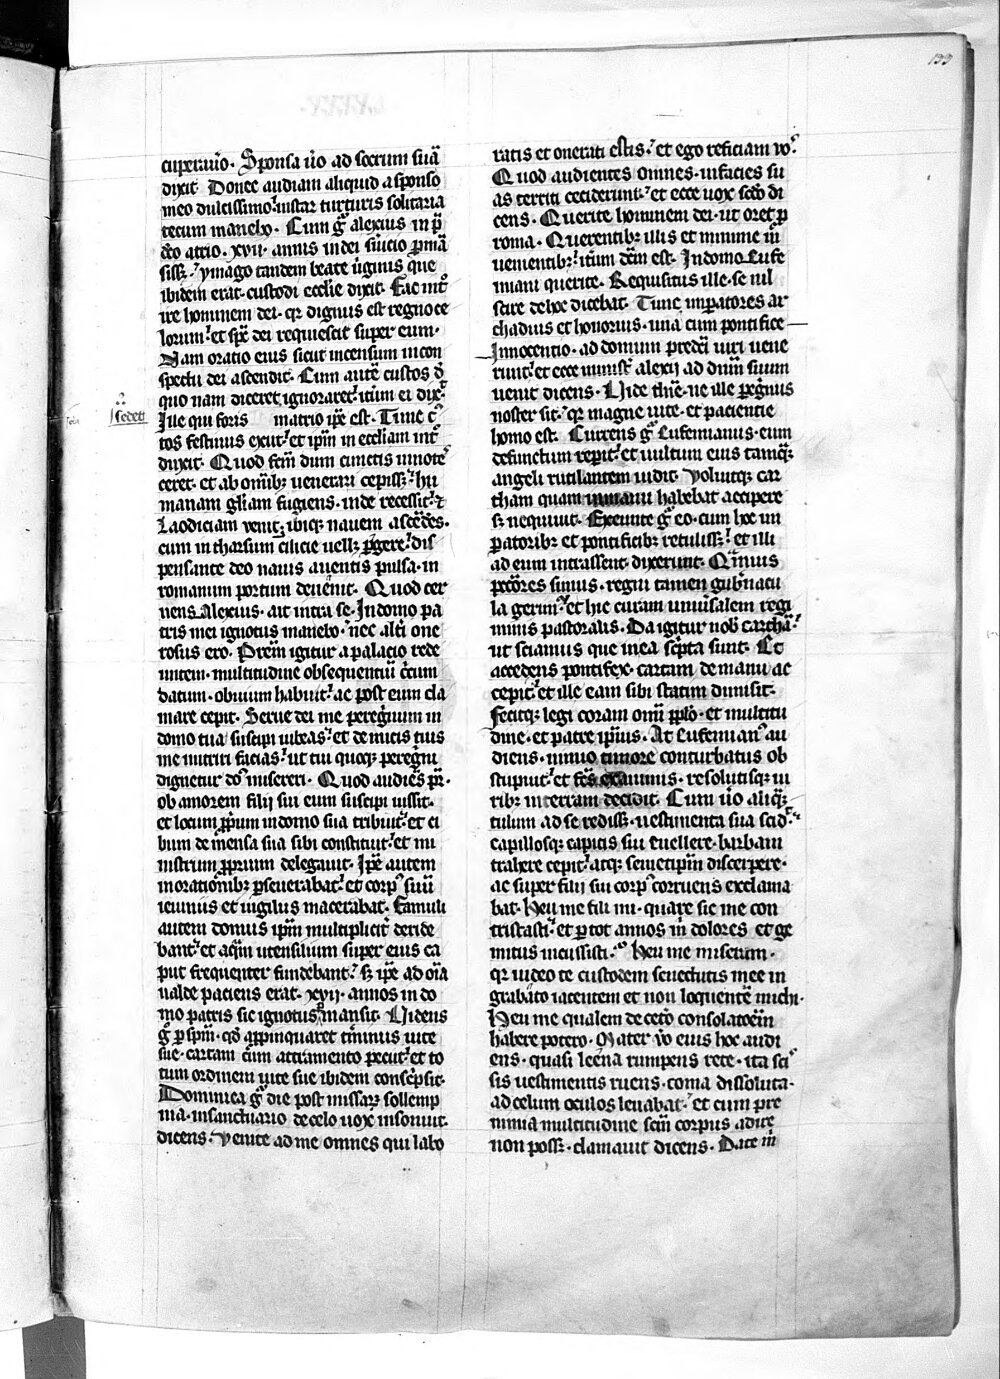 133
cuperauero. Sponsa u͛o ad socrum suā
dixit Donec audiam aliquid a sponso
meo dulcissimo. instar turturis solitaria
tecum manebo. Cum g͛ alexius in p̄
dc̄o atrio .xvii. annis in dei s͛uicio p͛mā
siss;. ymago tandem beate u͛ginis que
ibidem erat. custodi ecclie dixit. Fac int͛
ire hominem dei. qr dignus est regno ce
lorum. et sp̄c dei requiescit super eum.
Nam oratio eius sicut incensum in con
spectu dei ascendit. Cum autē custos d͛
quo nam diceret ignoraret. it͛um ei dix͛
Ille qui foris in atrio ip̄e est. Tunc c͛
sedet
tos festinus exiit. et ip̄m in eccliam int͛
duxit. Quod fcm̄ dum cunctis innote
ceret. et ab om̄ibz uenerari cepiss; hu
manam gl̄iam fugiens. inde recessit. ⁊
Laodiciam uenit; ibiqz nauem ascēdēs.
cum in tharsum cilicie uell; p͛gere. dis
pensante deo nauis a uentis pulsa. in
romanum portum deuēnit. Quod cer
nens Alexius. ait intra se. In domo pa
tris mei ignotus manebo. nec alt͛i one
rosus ero. Prēm igitur a palacio rede
untem. multitudine obsequentiū c͛cum
datum. obuium habuit. ac post eum cla
mare cepit. Serue dei me peregͥnum in
domo tua suscipi iubeas. et de micis tuis
me nutriri facias. ut tui quoqz peregͥni
dignetur dn̄s misereri. Quod audiēs pr̄.
ob amorem filii sui eum suscipi iussit.
et locum ꝓpium in domo sua tribuit. et ci
bum de mensa sua sibi constituit. et mi
nistrum ꝓprium delegauit. Ip̄e autem
in orationibz p͛seuerabat. et corp͛ suū
ieiuniis et uigiliis macerabat. Famuli
autem domus ip̄m multiplicit͛ deride
bant. et aq̄m utensilium super eius ca
put frequenter fundebant. sz ip̄e ad oīa
ualde paciens erat. xvii. annos in do
mo patris sic ignotus mansit. Uidens
g͛ p͛ sp̄m. qd͛ appinquaret t͛minus uite
sue. cartam cum attramento peciit. et to
tum ordinem uite sue ibidem conscͥpsit.
Dominica g͛ die post missarz sollemp
nia. in sanctuario de celo uox insonuit.
dicens. Uenite ad me omnes qui labo
ratis et onerati estis. et ego reficiam uos.
Quod audientes omnes. in facies su
as territi ceciderunt. et ecce uox scd̄o di
cens. Querite hominem dei. ut oret p̱
roma. Querentibz illis et minime in
uenientibz. it͛um dcm̄ est. In domo Eufe
miani querite. Requisitus ille. se nil
scire de hoc dicebat. Tunc imperatores ar
chadius et honorius. una cum pontifice
Innocentio. ad domum predcī uiri uene
runt. et ecce minist͛ alexii ad dn̄m suum
uenit dicens. Uide dn̄e. ne ille peregͥnus
noster sit. qr magne uite. et paciencie
homo est. Currens g͛ Eufemianus. eum
defunctum repperit. et uultum eius tamqz
angeli rutilantem uidit. Uoluitqz car
tham quam in manu habebat accipere
sz nequiuit. Exeunte g͛ eo. cum hoc im
patoribz et pontificibz retuliss;. et illi
ad eum intrassent. dixerunt. Qͣmuis
pccōres simus. regni tamen gub͛nacu
la gerim͛. et hic curam uniu͛salem regi
minis pastoralis. Da igitur nob̄ carthā.
ut sciamus que in ea scͥpta sunt. Et
accedens pontifex. cartam de manu ac
cepit. et ille eam sibi statim dimisit.
Fecitqz legi coram omī pplo. et multitu
dine. et patre ipīus. At Eufemian͛ au
diens. nimio timore conturbatus ob
stupuit. et fc̄s exanimis. resolutisqz ui
ribz in terram decidit. Cum u͛o aliqn͛
tulum ad se rediss;. uestimenta sua scid͛.
capillosqz capitis sui euellere. barbam
trahere cepit. atqz semetipm̄ discerpere.
ac super filii sui corp͛ corruens exclama
bat. Heu me fili mi. quare sic me con
tristasti. et p̱ tot annos in dolores et ge
mitus incussisti. Heu me miserum.
qr uideo te custodem senectutis mee in
grabato iacentem et non loquentē michi.
Heu me qualem de cet͛o consolatōem
habere potero. Mater u͛o eius hoc audi
ens. quasi leena rumpens rete. ita scis͛
sis uestimentis ruens. coma dissoluta.
ad celum oculos leuabat. et cum pre
nimia multitudine scm̄ corpus adire
non poss;. clamauit dicens. Date m̄